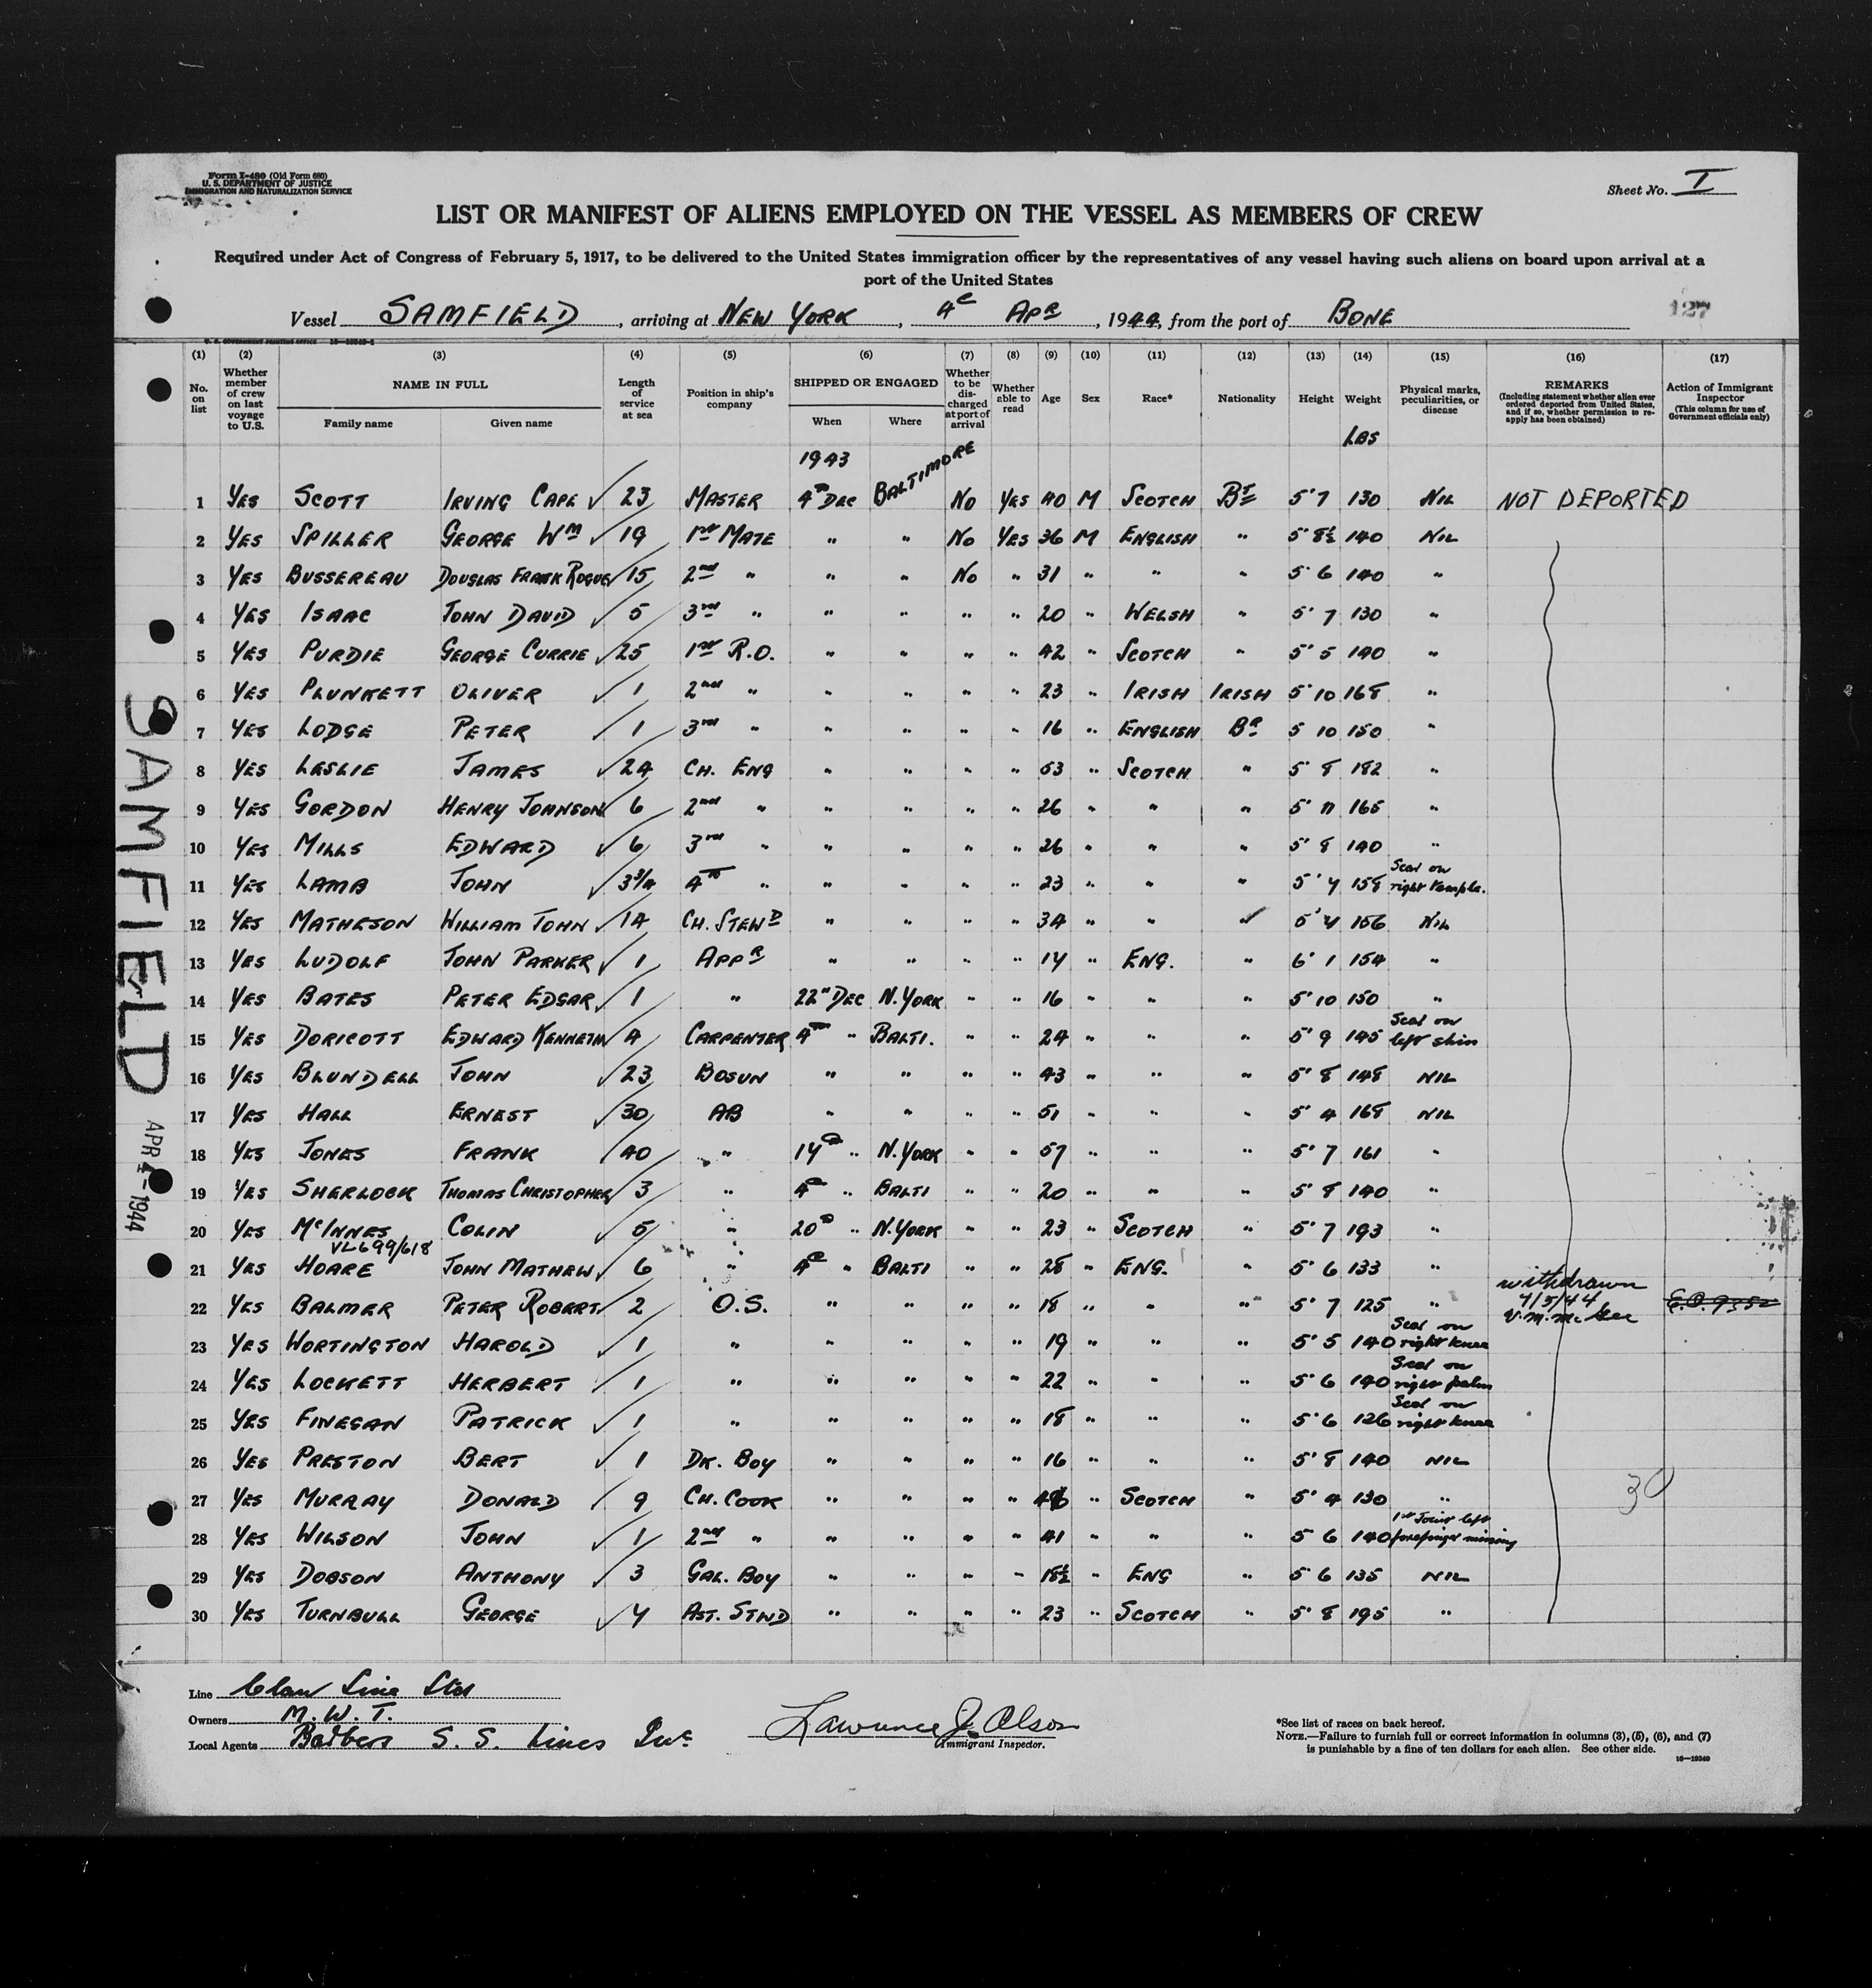 Form I-480 (Old Form 680)
U. S. DEPARTMENT OF JUSTICE
IMMIGRATION AND NATURALIZATION SERVICE
Sheet No. I
LIST OR MANIFEST OF ALIENS EMPLOYED ON THE VESSEL AS MEMBERS OF CREW
Required under Act of Congress of February 5, 1917, to be delivered to the United States immigration officer by the representatives of any vessel having such aliens on board upon arrival at a
port of the United States
Vessel SAMFIELD, arriving at NEW YORK, 4th APR, 1944, from the port of BONE
127
(1) (2) (3) (4) (5) (6) (7) (8) (9) (10) (11) (12) (13) (14) (15) (16) (17)
No. on list Whether member of crew on last voyage to U.S. NAME IN FULL Family name Given name Length of service at sea Position in ship's company SHIPPED OR ENGAGED When Where Whether to be discharged at port of arrival Whether able to read Age Sex Race* Nationality Height Weight Physical marks, peculiarities, or disease REMARKS (Including statement whether alien ever ordered deported from United States, and if so, whether permission to reapply has been obtained) Action of Immigrant Inspector (This column for use of Government officials only)
LBS
1943
1 YES SCOTT IRVING CAPE ✓ 23 MASTER 4TH DEC BALTIMORE NO YES 40 M SCOTCH BT 5'7 130 NIL NOT DEPORTED
2 YES SPILLER GEORGE WM ✓ 19 1ST MATE " " NO YES 36 M ENGLISH " 5'8½ 140 NIL
3 YES BUSSEREAU DOUGLAS FRANK 15 2nd " " " NO " 31 " " " 5'6 140 "
4 YES ISAAC JOHN DAVID ✓ 5 3rd " " " " " 20 " WELSH " 5'7 130 "
5 YES PURDIE GEORGE CURRIE ✓ 25 1ST R.O. " " " " 42 " SCOTCH " 5'5 140 "
6 YES PLUNKETT OLIVER ✓ 1 2nd " " " " " 23 " IRISH IRISH 5'10 168 "
7 YES LODGE PETER ✓ 1 3rd " " " " " 16 " ENGLISH BR 5 10 150 "
8 YES LESLIE JAMES ✓ 24 CH. ENG " " " " 53 " SCOTCH " 5'8 182 "
9 YES GORDON HENRY JOHNSON 6 2nd " " " " " 26 " " " 5'11 165 "
10 YES MILLS EDWARD ✓ 6 3rd " " " " " 26 " " " 5'8 140 "
11 YES LAMB JOHN ✓ 3¾ 4TH " " " " " 23 " " " 5'7 158 Scar on right temple.
12 YES MATHESON WILLIAM JOHN ✓ 14 CH. STEWD " " " " 34 " " " 5'7 156 NIL
13 YES LUDOLF JOHN PARKER ✓ 1 APPR " " " " 17 " ENG. " 6'1 154 "
14 YES BATES PETER EDGAR ✓ 1 " 22nd DEC N.YORK " " 16 " " " 5'10 150 "
15 YES DORICOTT EDWARD KENNETH 4 CARPENTER 4TH " BALTI. " " 24 " " " 5'9 145 Scar on left shin
16 YES BLUNDELL JOHN ✓ 23 BOSUN " " " " 43 " " " 5'8 148 NIL
17 YES HALL ERNEST ✓ 30 AB " " " " 51 " " " 5'4 168 NIL
18 YES JONES FRANK 40 " 17th " N.YORK " " 57 " " " 5'7 161 "
19 YES SHERLOCK THOMAS CHRISTOPHER 3 " 4th " BALTI " " 20 " " " 5'8 140 "
20 YES McINNES COLIN ✓ 5 " 20th " N.YORK " " 23 " SCOTCH " 5'7 193 "
VL699/618
21 YES HOARE JOHN MATHEW ✓ 6 " 4th " BALTI " " 28 " ENG. " 5'6 133 "
22 YES BALMER PETER ROBERT ✓ 2 O.S. " " " " 18 " " " 5'7 125 " withdrawn 4/5/44 E.O. 9352
23 YES WORTINGTON HAROLD ✓ 1 " " " " " 19 " " " 5'5 140 Scar on right knee
24 YES LOCKETT HERBERT ✓ 1 " " " " " 22 " " " 5'6 140 Scar on right palm
25 YES FINEGAN PATRICK ✓ 1 " " " " " 18 " " " 5'6 126 Scar on right knee
26 YES PRESTON BERT ✓ 1 DK. BOY " " " " 16 " " " 5'8 140 NIL
27 YES MURRAY DONALD ✓ 9 CH. COOK " " " " " SCOTCH " 5'4 130 "
30
28 YES WILSON JOHN ✓ 1 2nd " " " " " 41 " " " 5 6 140 1st Joint left forefinger missing
29 YES DOBSON ANTHONY ✓ 3 GAL. BOY " " " " 18½ " ENG " 5 6 135 NIL
30 YES TURNBULL GEORGE ✓ 7 AST. STWD " " " " 23 " SCOTCH " 5'8 195 "
SAMFIELD
APR 4 - 1944
Line Clan Line Ltd
Owners M. W. T.
Local Agents Barbers S. S. Lines Inc.
Lawrence J. Olson
Immigrant Inspector.
*See list of races on back hereof.
NOTE.—Failure to furnish full or correct information in columns (3), (5), (6), and (7)
is punishable by a fine of ten dollars for each alien. See other side.